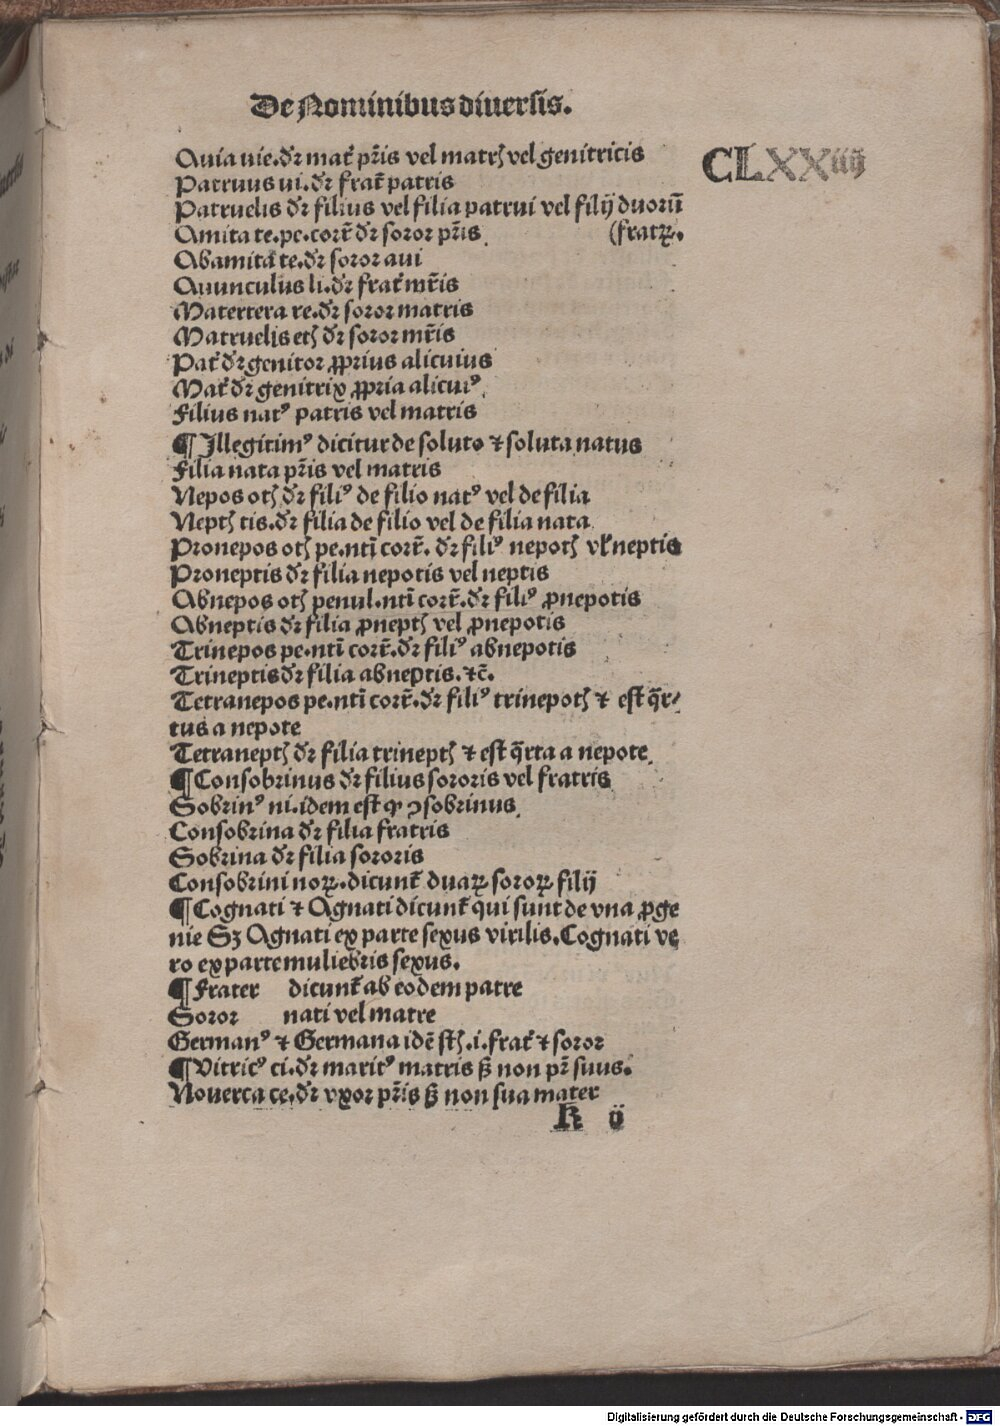 De Nominibus diuersis.
CLXXiiij
Auia uie. dr̄ mat̄ pr̄is vel matrꝭ vel genitricis
Patruus ui. dr̄ frat̄ patris
Patruelis dr̄ filius vel filia patrui vel filij duorū
Amita te. pe. corr̄. dr̄ soror pr̄is. (fratꝝ.
Abamita te. dr̄ soror aui
Auunculus li. dr̄ frat̄ mr̄is
Matertera re. dr̄ soror matris
Matruelis etꝭ dr̄ soror mr̄is
Pat̄ dr̄ genitor ꝓprius alicuius
Mat̄ dr̄ genitrix ꝓpria alicuiꝰ.
Filius natꝰ patris vel matris
¶ Illegitimꝰ dicitur de soluto ⁊ soluta natus
Filia nata pr̄is vel matris
Nepos otꝭ dr̄ filiꝰ de filio natꝰ vel de filia
Neptꝭ tis. dr̄ filia de filio vel de filia nata
Pronepos otꝭ pe. nti̅ corr̄. dr̄ filiꝰ nepotꝭ vl̓ neptis
Proneptis dr̄ filia nepotis vel neptis
Abnepos otꝭ penul. nti̅ corr̄. dr̄ filiꝰ ꝓnepotis
Abneptis dr̄ filia ꝓneptꝭ vel ꝓnepotis
Trinepos pe. nti̅ corr̄. dr̄ filiꝰ abnepotis
Trineptis dr̄ filia abneptis. ⁊c̄.
Tetranepos pe. nti̅ corr̄. dr̄ filiꝰ trinepotꝭ ⁊ est q̄r⸗
tus a nepote
Tetraneptꝭ dr̄ filia trineptꝭ ⁊ est q̄rta a nepote.
¶ Consobrinus dr̄ filius sororis vel fratris
Sobrinꝰ ni. idem est qꝫ ꝯsobrinus.
Consobrina dr̄ filia fratris
Sobrina dr̄ filia sororis
Consobrini noꝝ. dicunt̄ duaꝝ soroꝝ filij
¶ Cognati ⁊ Agnati dicunt̄ qui sunt de vna ꝓge
nie Sꝫ Agnati ex parte sexus virilis. Cognati ve
ro ex parte muliebris sexus.
¶ Frater dicunt̄ ab eodem patre
Soror nati vel matre
Germanꝰ ⁊ Germana idē st̄ꝭ .i. frat̄ ⁊ soror
¶ Vitricꝰ ci. dr̄ maritꝰ matris sꝫ non pr̄ suus.
Nouerca ce. dr̄ vxor pr̄is sꝫ non sua mater
R ij
Digitalisierung gefördert durch die Deutsche Forschungsgemeinschaft - DFG